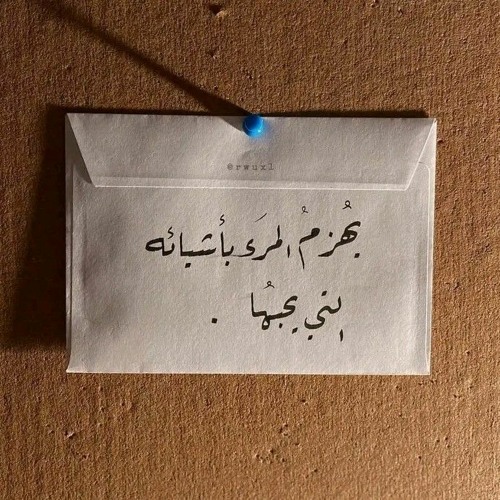 @rwuxl
يُهزمُ المرَء بأشيائه
التي يحبهُا .